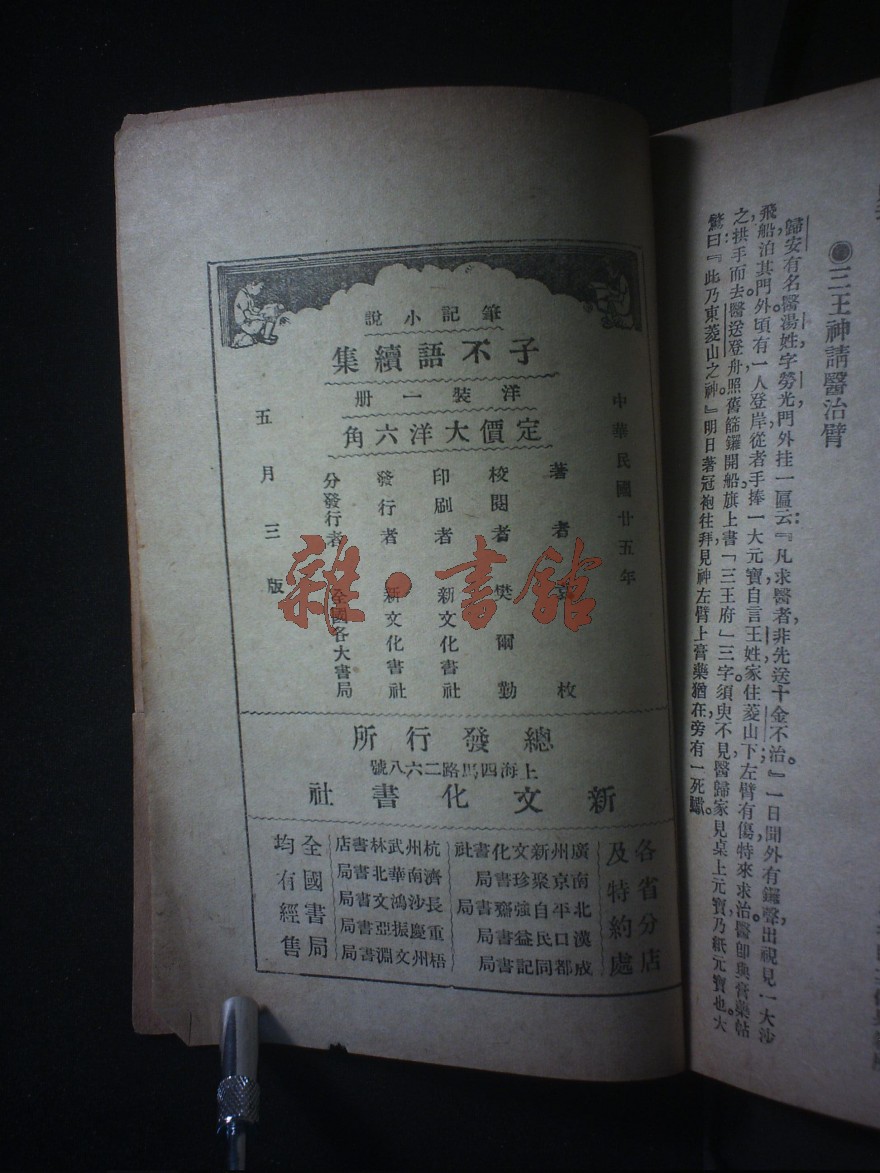 ●三王神請醫治臂
歸安有名醫湯姓字勞光門外挂一匾云『凡求醫者，非先送十金不治。』一日聞外有鑼聲出視見一大沙
飛船泊其門外頃有一人登岸從者手捧一大元寶自言王姓家住菱山下左臂有傷特來求治醫卽與膏藥帖
之拱手而去。醫送登舟照舊篩鑼開船旗上書「三王府」三字須臾不見醫歸家見桌上元寶乃紙元寶也。大
驚曰：『此乃東菱山之神。』明日著冠袍往拜見神左臂上膏藥猶在旁有一死
筆記小說
子不語續集
洋裝一册
定價大洋六角
中華民國廿五年
著者 枚
校閱者 樊爾勤
印刷者 新文化書社
發行者 新文化書社
分發行者 全國各大書局
五月三版
雜·書館
總發行所
上海四馬路二六八號
新文化書社
各省分店
及特約處
廣州新文化書社
南京聚珍書局
北平自強齋書局
漢口民益書局
成都同記書局
杭州武林書店
濟南華北書局
長沙鴻文書局
重慶振亞書局
梧州文淵書局
全國書局
均有經售